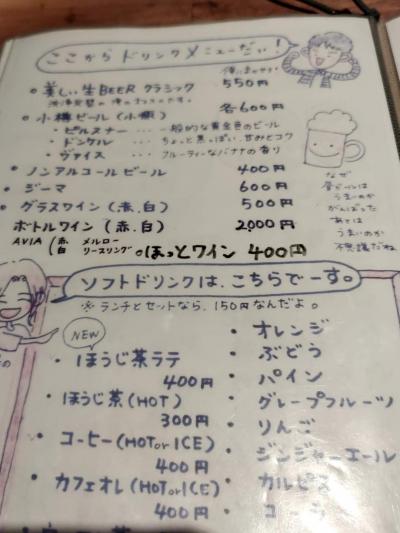 ここからドリンクメニューだい!
美しい生BEER クラシック 550円
小樽ビール(小瓶) 各600円
・ピルスナー … 一般的な黄金色のビール
・ドンケル … ちょっと黒っぽい、甘みとコク
・ヴァイス … フルーティーなバナナの香り
ノンアルコールビール 400円
ジーマ 600円
グラスワイン(赤、白) 500円
ボトルワイン(赤、白) 2,000円
AVIA(赤 メルロー
白 リースリング
ほっとワイン 400円
なぜ
昼からのビールは
うまいのか
がんばった
あとは
うまいのか
不思議だね
ソフトドリンクは、こちらでーす。
※ランチとセットなら、150円なんだよ。
NEW
・ほうじ茶ラテ
400円
・ほうじ茶(HOT)
300円
・コーヒー(HOTorICE)
400円
・カフェオレ(HOTorICE)
400円
・オレンジ
・ぶどう
・パイン
・グレープフルーツ
・りんご
・ジンジャーエール
・カルピス
・コーラ